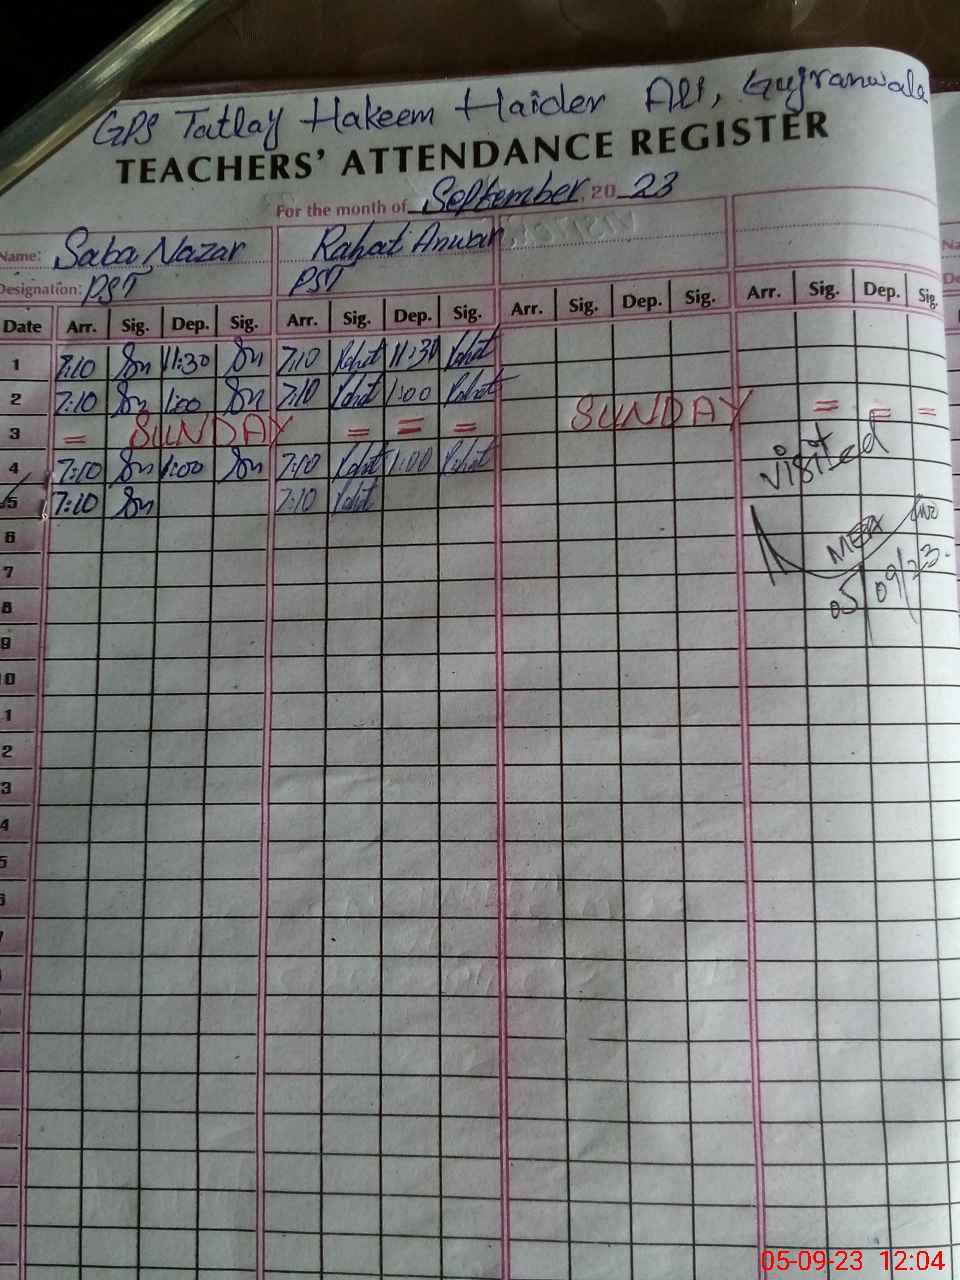 GPS Tatlay Hakeem Haider Ali, Gujranwala
TEACHERS' ATTENDANCE REGISTER
For the month of September 20 23
Name: Saba Nazar Rahat Anwar
Designation: PST PST
Date Arr. Sig. Dep. Sig. Arr. Sig. Dep. Sig. Arr. Sig. Dep. Sig. Arr. Sig. Dep. Sig.
1 7:10 Sn 11:30 Sn 7:10 Rahat 11:30 Rahat
2 7:10 Sn 1:00 Sn 7:10 Rahat 1:00 Rahat
3 = SUNDAY = = = SUNDAY = = =
4 7:10 Sn 1:00 Sn 7:10 Rahat 1:00 Rahat
5 7:10 Sn 7:10 Rahat
Visited
MEA
05/09/23
6
7
8
9
10
1
2
3
4
5
6
7
05-09-23 12:04